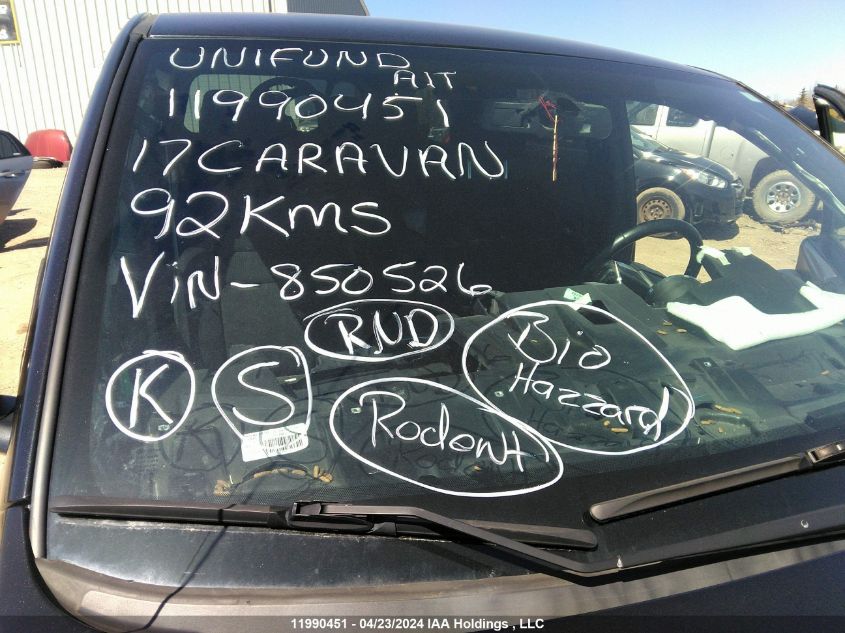 UNIFUND
AIT
11990451
17 CARAVAN
92KMS
ViN-850526
RND
Bio
Hazzard
K
S
Rodent
11990451 - 04/23/2024 IAA Holdings , LLC